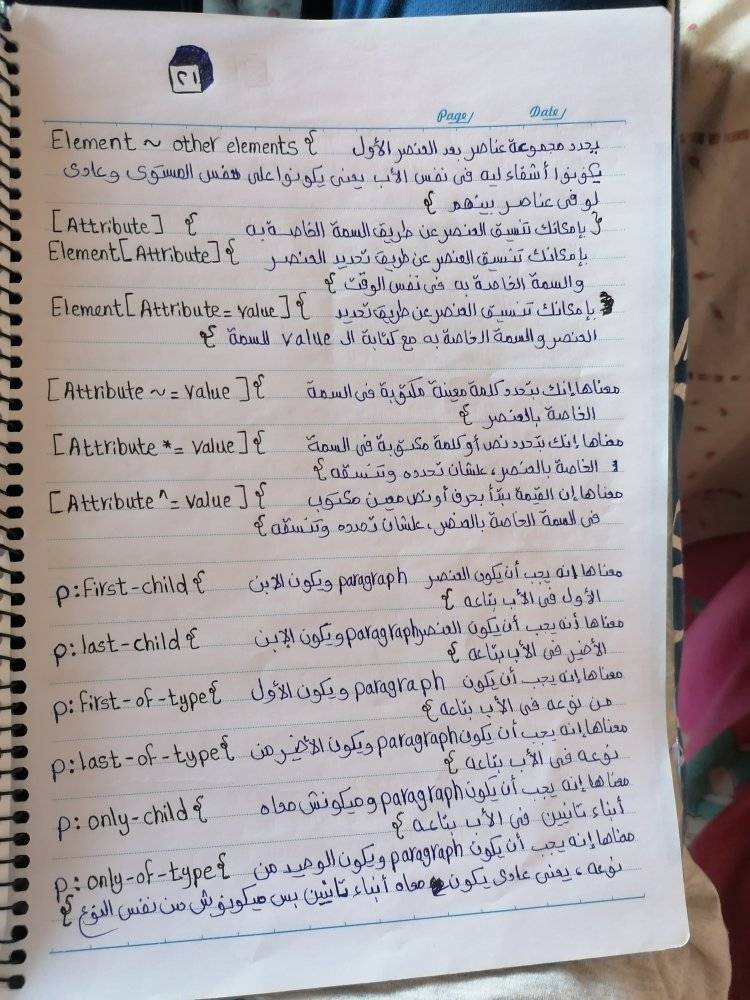 ١٢١
Page/ Date/
Element ~ other elements { يحدد مجموعة عناصر بعد العنصر الأول
يكونوا أشقاء ليه فى نفس الأب يعنى يكونوا على نفس المستوى وعادى
لو فى عناصر بينهم }
[Attribute] { بإمكانك تنسيق العنصر عن طريق السمة الخاصة به }
Element[Attribute] { بإمكانك تنسيق العنصر عن طريق تحديد العنصر
والسمة الخاصة به فى نفس الوقت }
Element[Attribute=value] { بإمكانك تنسيق العنصر عن طريق تحديد
العنصر والسمة الخاصة به مع كتابة الـ value للسمة }
[Attribute ~= value] { معناها إنك بتحدد كلمة معينة مكتوبة فى السمة
الخاصة بالعنصر }
[Attribute *= value] { معناها إنك بتحدد نص أو كلمة مكتوبة فى السمة
الخاصة بالعنصر، علشان تحدده وتنسقه }
[Attribute ^= value] { معناها إن القيمة تبدأ بحرف أو نص معين مكتوب
فى السمة الخاصة بالعنصر، علشان تحدده وتنسقه }
p:first-child { معناها إنه يجب أن يكون العنصر paragraph ويكون الابن
الأول فى الأب بتاعه }
p:last-child { معناها أنه يجب أن يكون العنصر paragraph ويكون الإبن
الأخير فى الأب بتاعه }
p:first-of-type { معناها إنه يجب أن يكون paragraph ويكون الأول
من نوعه فى الأب بتاعه }
p:last-of-type { معناها إنه يجب أن يكون paragraph ويكون الأخير من
نوعه فى الأب بتاعه }
p:only-child { معناها إنه يجب أن يكون paragraph وميكونش معاه
أبناء تانيين فى الأب بتاعه }
p:only-of-type { معناها إنه يجب أن يكون paragraph ويكون الوحيد من
نوعه، يعنى عادى يكون معاه أبناء تانيين بس ميكونوش من نفس النوع }